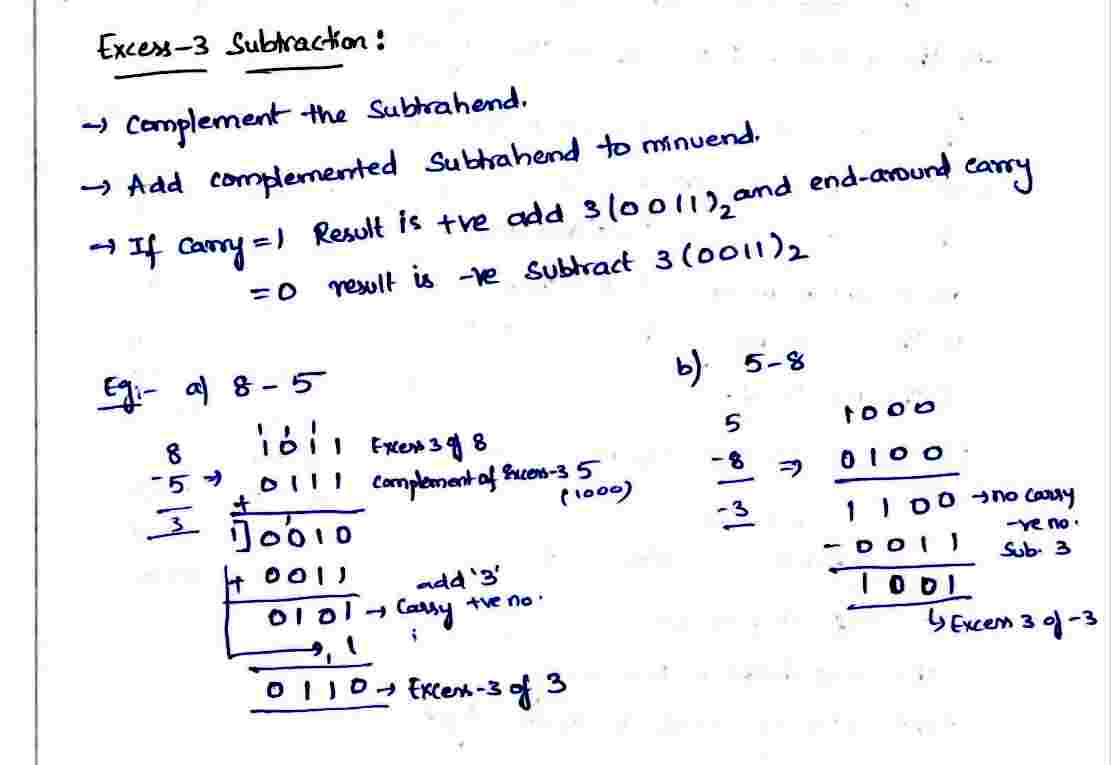 Excess-3 Subtraction:
→ Complement the Subtrahend.
→ Add complemented Subtrahend to minuend.
→ If Carry = 1 Result is +ve add 3(0011)2 and end-around carry
= 0 result is -ve subtract 3(0011)2
Eg:- a) 8 - 5
1 1 1
8 1011 Excess 3 of 8
-5 ⇒ + 0111 Complement of Excess-3 5
(1000)
3 1] 0010
1
+ 0011 add '3'
0101 → Carry +ve no.
1
0110 → Excess-3 of 3
b) 5-8
5 1000
-8 ⇒ 0100
-3 1100 → no carry
-ve no.
- 0011 Sub. 3
1001
↳ Excess 3 of -3